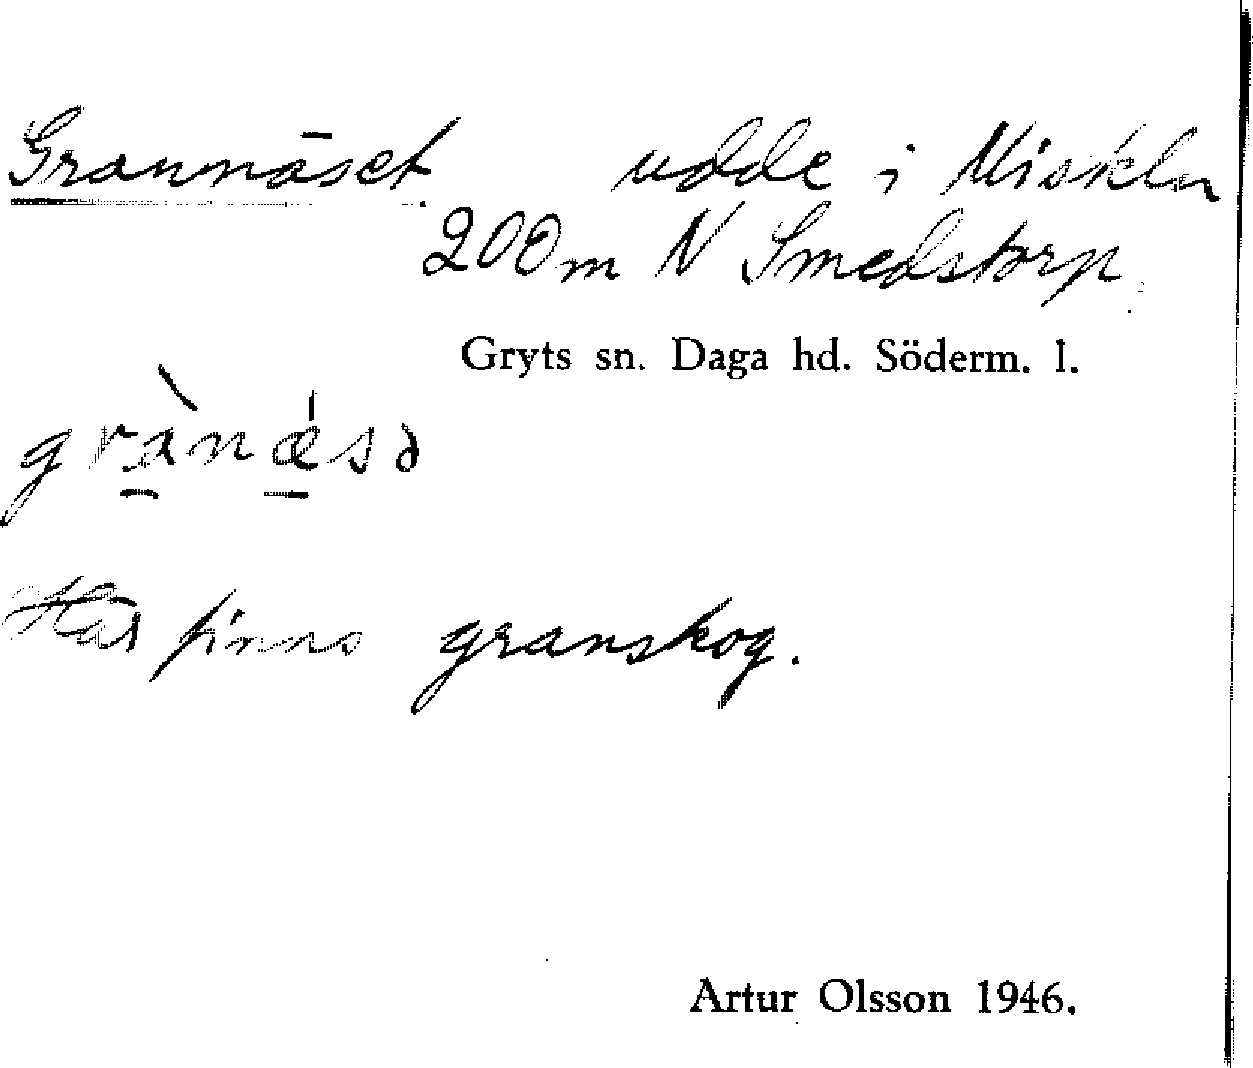 Grannäset udde i Misklan
200m N Smedstorp.
Gryts sn. Daga hd. Söderm. l.
grànǽsə
Här finns granskog.
Artur Olsson 1946.